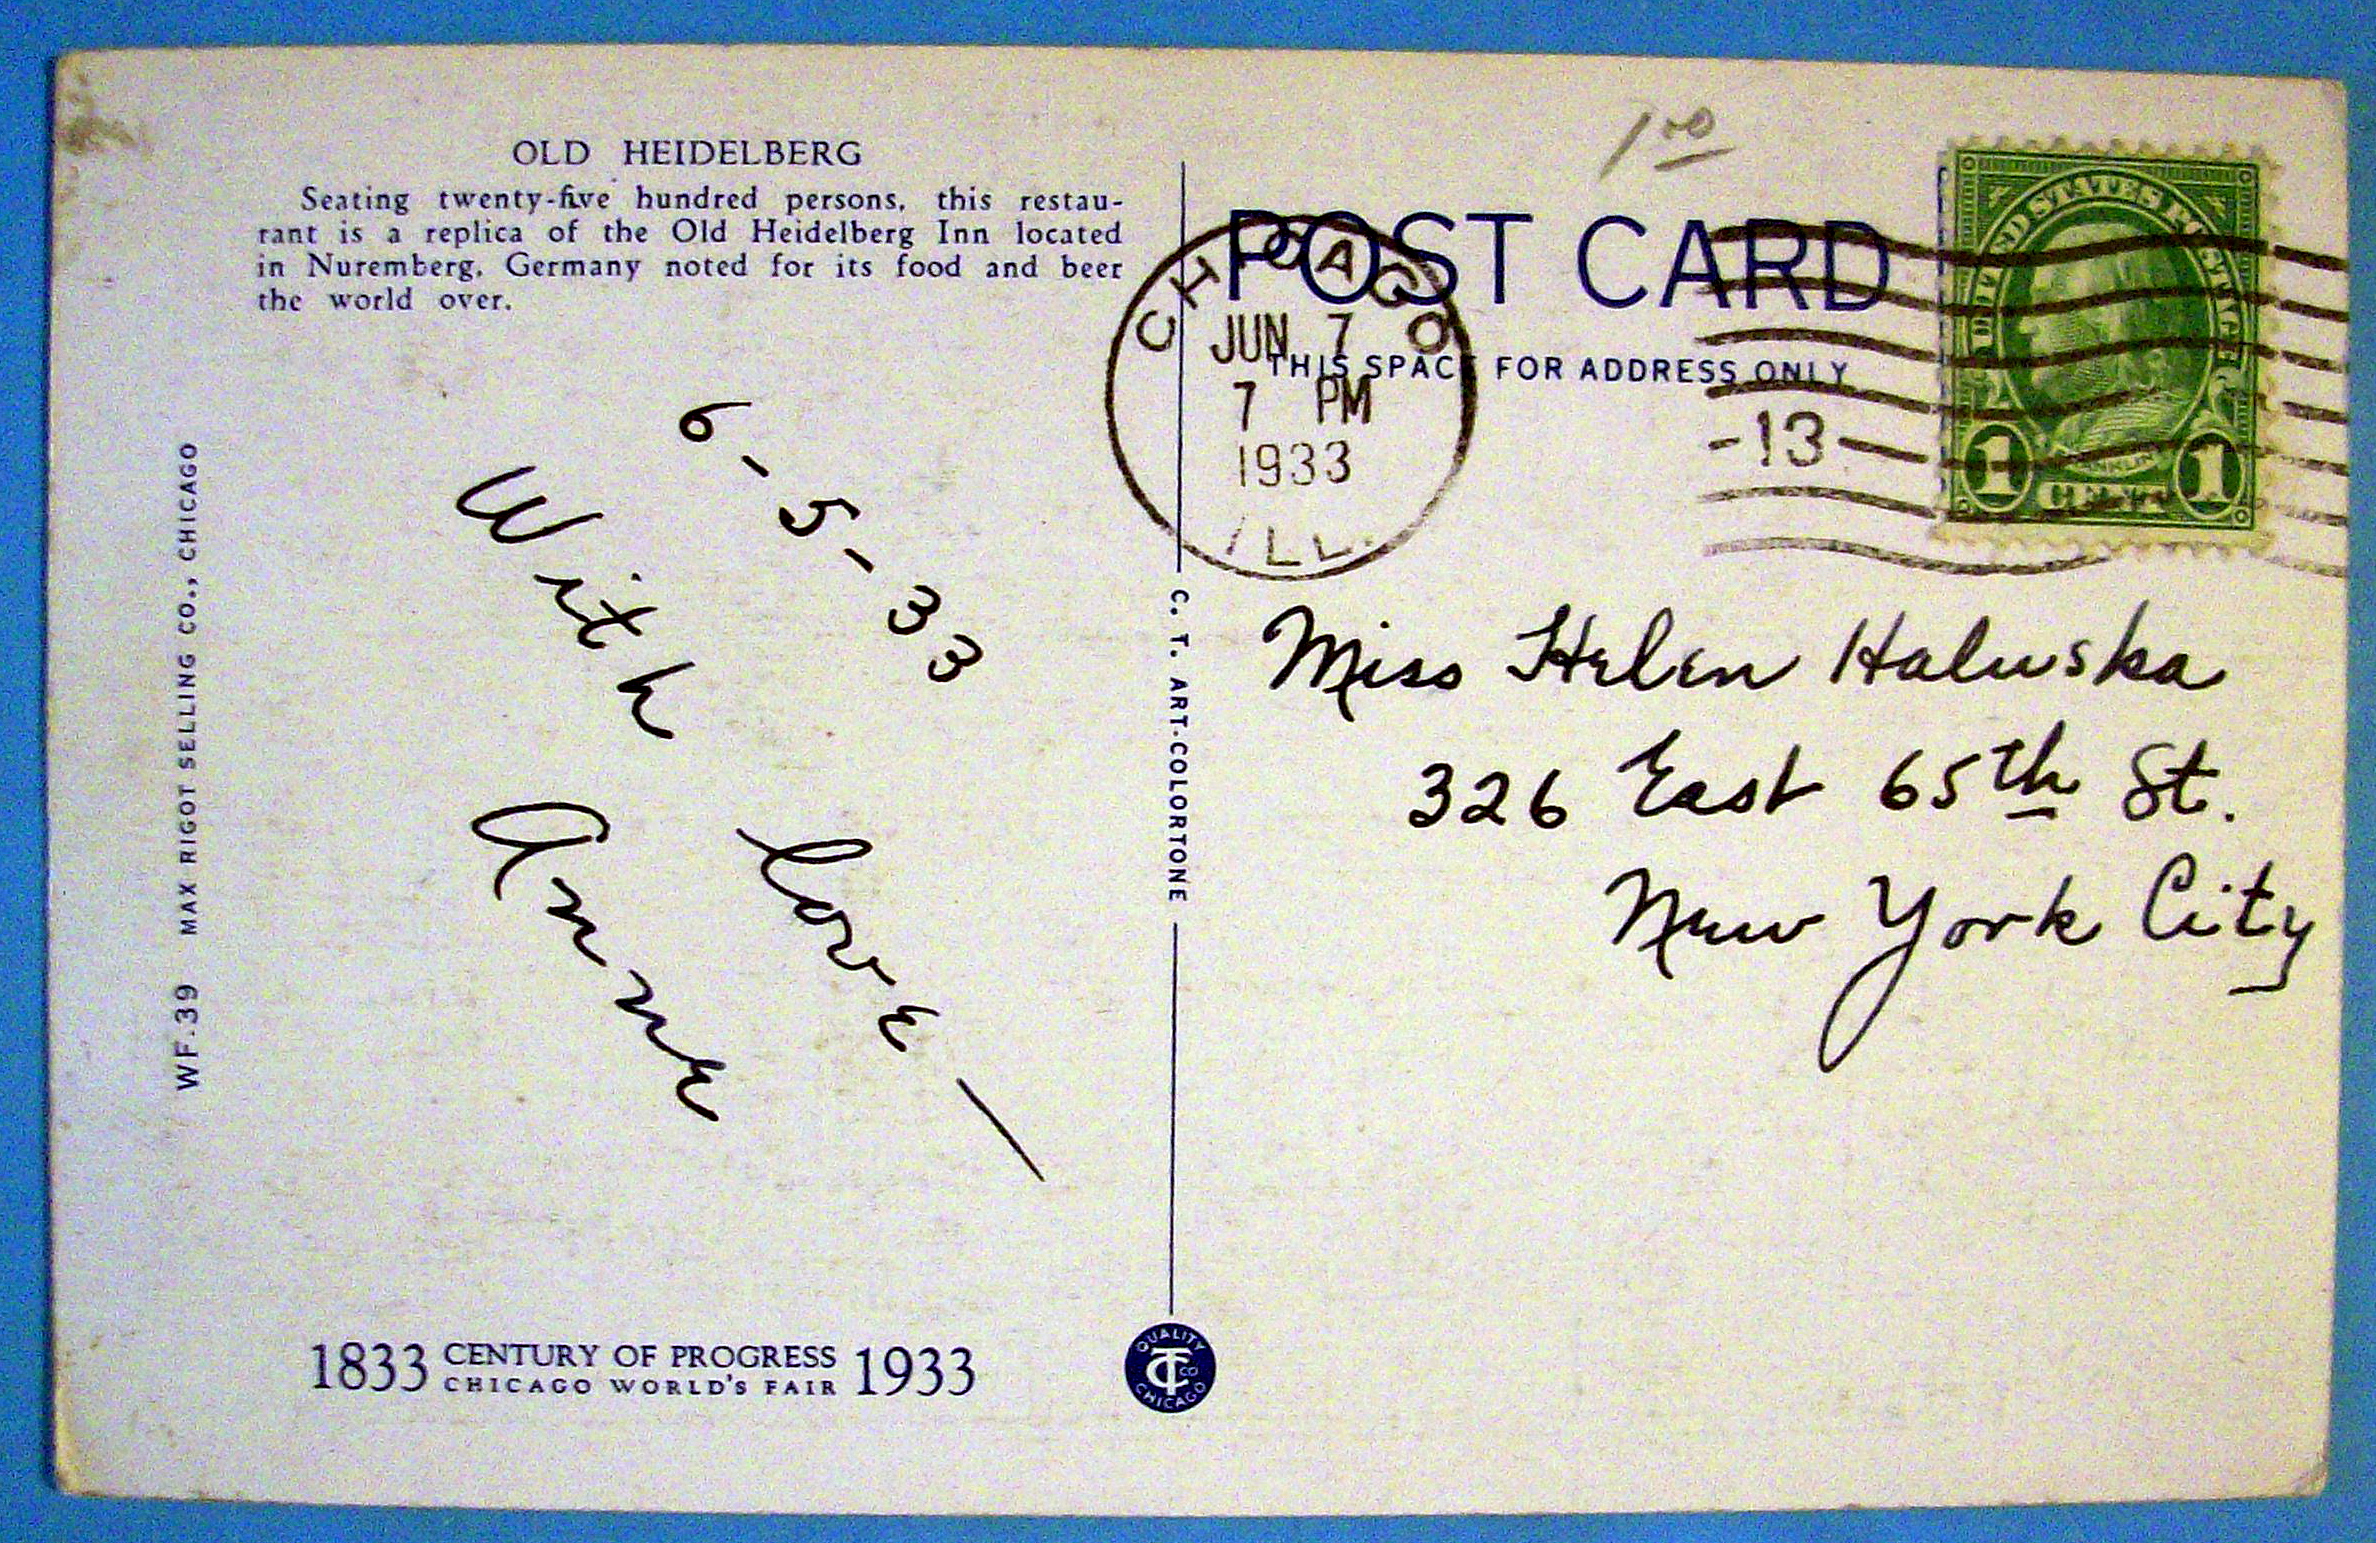 OLD HEIDELBERG
Seating twenty-five hundred persons, this restau-
rant is a replica of the Old Heidelberg Inn located
in Nuremberg, Germany noted for its food and beer
the world over.
6-5-33
With love —
Anne
WF.39 MAX RIGOT SELLING CO., CHICAGO
1833 CENTURY OF PROGRESS 1933
CHICAGO WORLD'S FAIR
C. T. ART-COLORTONE
QUALITY
CT CO
CHICAGO
1.00
POST CARD
THIS SPACE FOR ADDRESS ONLY
CHICAGO
JUN 7
7 PM
1933
ILL.
-13-
UNITED STATES POSTAGE
FRANKLIN
1 CENT 1
Miss Helen Haluska
326 East 65th St.
New York City